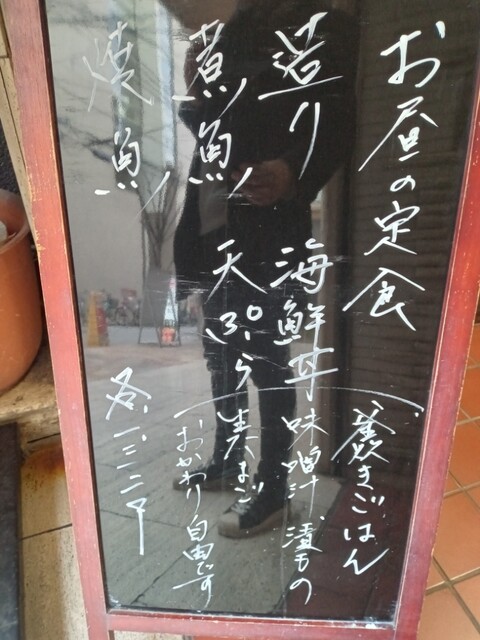 お昼の定食
造り 海鮮丼
煮魚 天ぷら
焼魚
(釜炊きごはん
味噌汁、漬もの
生たまご
おかわり自由です)
各